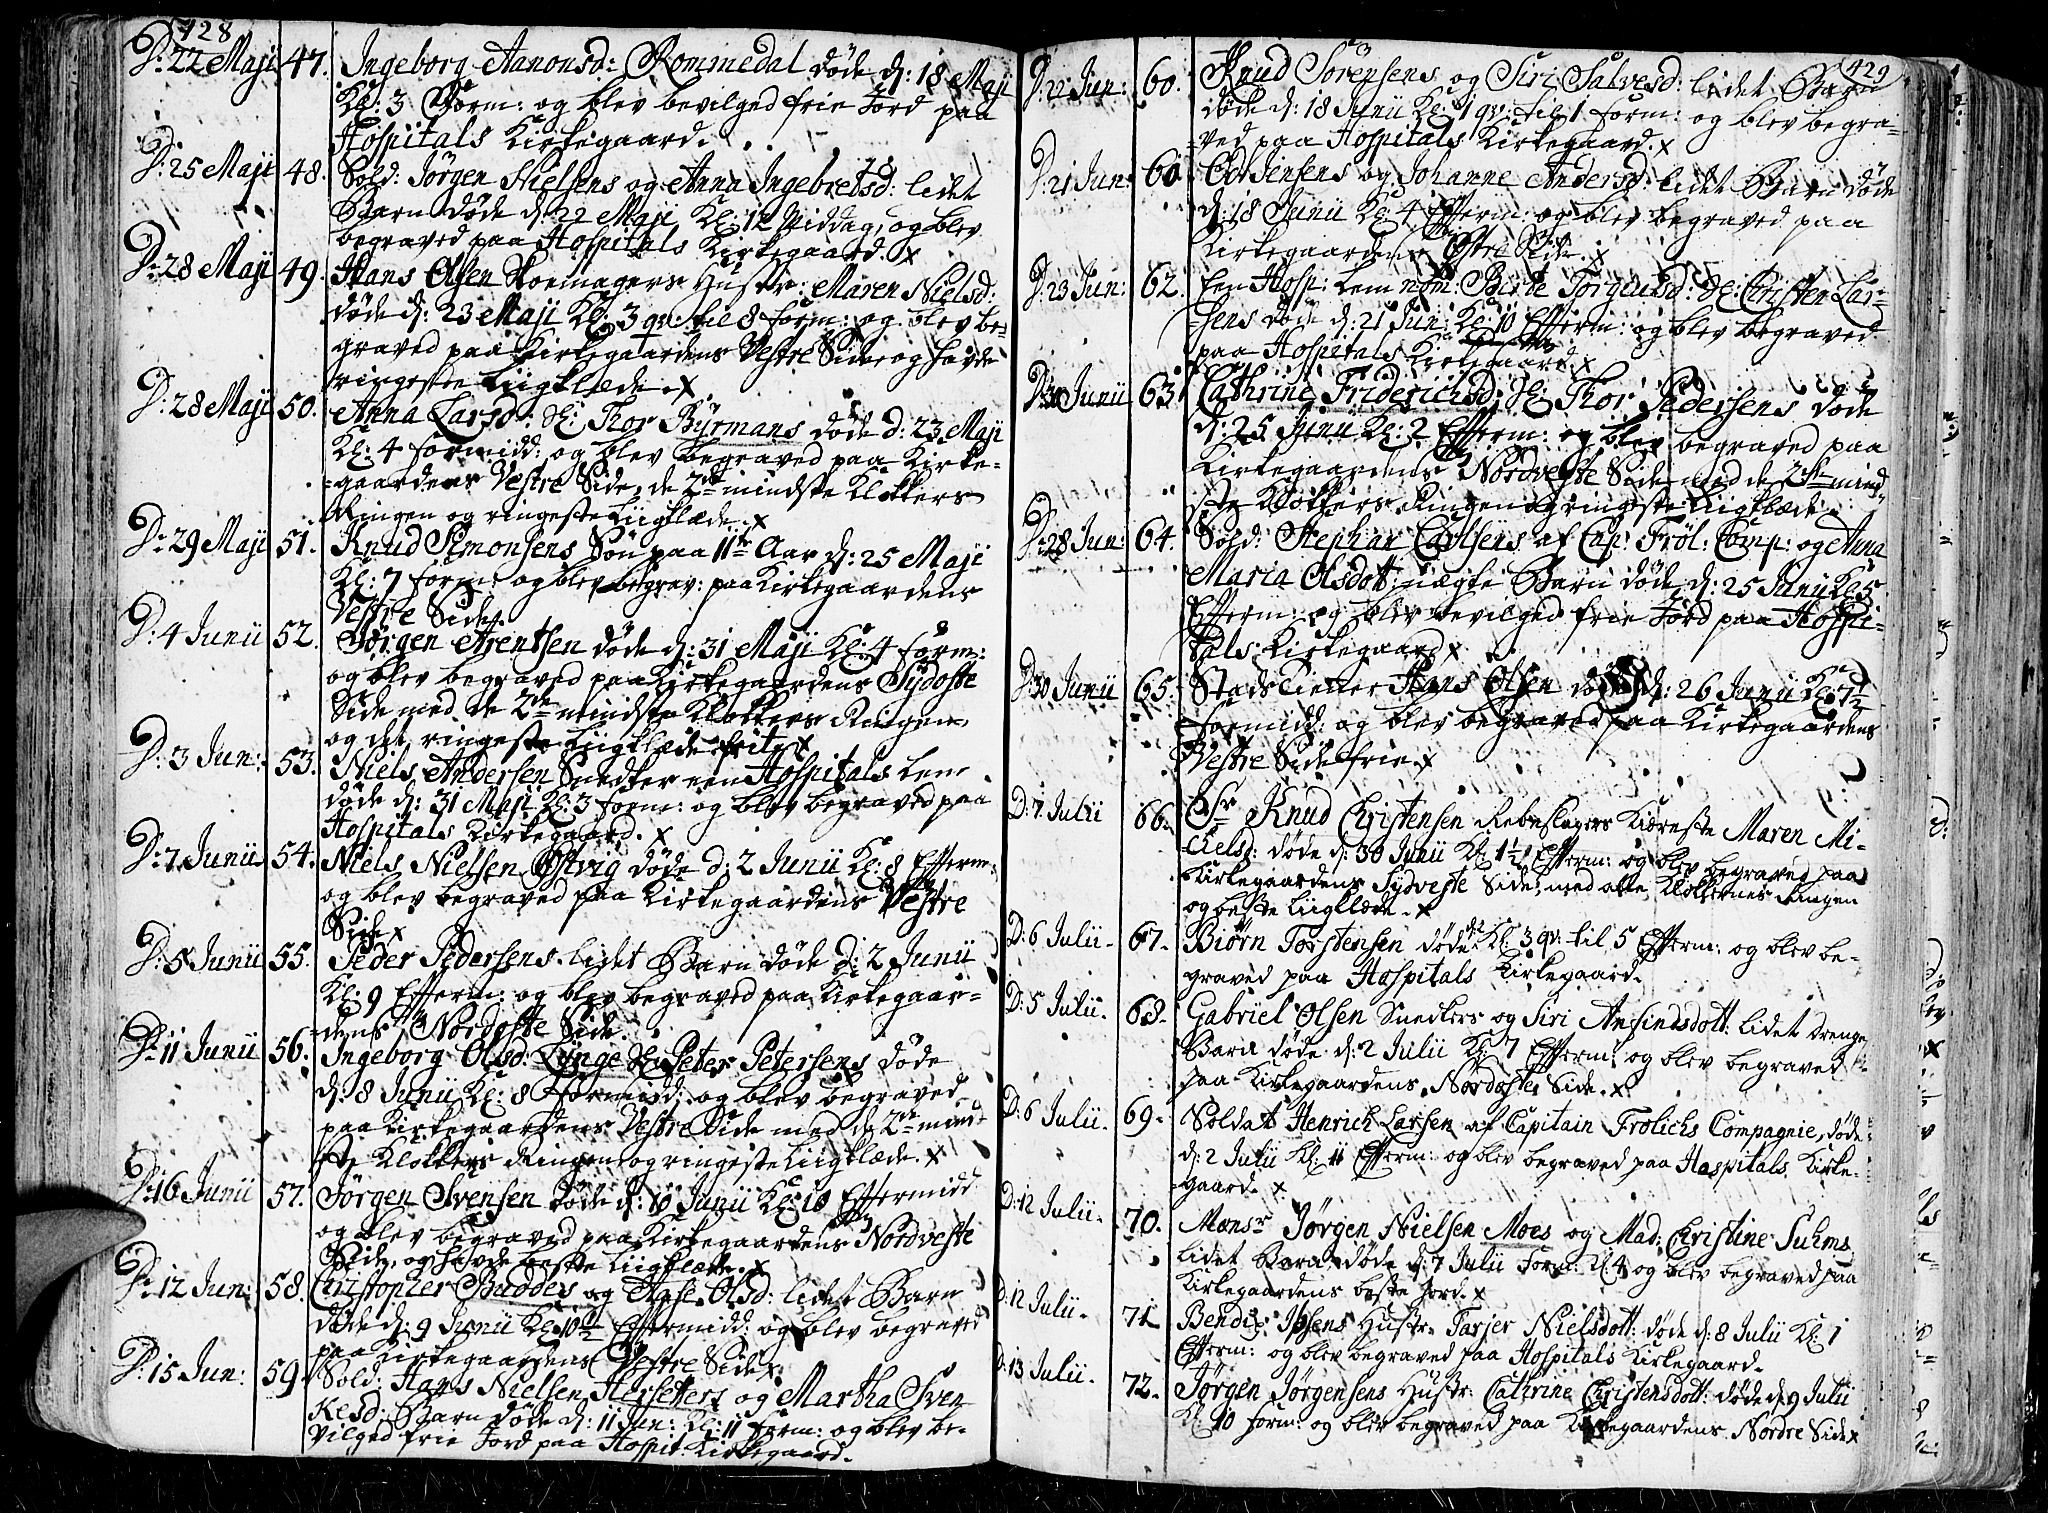 428
D: 22 Maji 47. Ingeborg Aanonsd: Rommedal døde d: 18 Maji
Kl: 3 Form: og blev bevilged frie Jord paa
Hospitals Kirkegaard.
D: 25 Maji 48. Sold: Jørgen Nielsens og Anna Ingebretsd: lidet
Barn døde d: 22 Maji Kl: 12 Middag, og blev
begraved paa Hospitals Kirkegaard. x
D: 28 Maji 49. Hans Olsen Skoemagers Hustr: Maren Nielsd:
døde d: 23 Maji Kl: 3 qv: til 8 form: og blev be-
graved paa Kirkegaardens Vestre Side og hafde
ringeste Liigklæde. x
D: 28 Maji 50. Anna Larsd: Sl: Thor Byrmans døde d: 23 Maji
Kl: 4 formidd: og blev begraved paa Kirke-
-gaardens Vestre Side, de 2de mindste Klokkers
Ringen og ringeste Liigklæde. x
D: 29 Maji 51. Knud Simonsens Søn paa 11te Aar d: 25 Maji
Kl: 7 form: og blev begrav: paa Kirkegaardens
Vestre Side.
D: 4 Junii 52. Jørgen Arentsen døde d: 31 Maji Kl: 4 form:
og blev begraved paa Kirkegaardens Sydoste
Side med de 2de mindste Klokkers Ringen
og det ringeste Liigklæde frit. x
D: 3 Jun: 53. Niels Andersen Snedker een Hospitals Lem
døde d: 31 Maji Kl: 3 form: og blev begraved paa
Hospitals Kirkegaard. x
D: 7 Junii 54. Niels Nielsen Østvig døde d: 2 Junii Kl: 8 Efterm:
og blev begraved paa Kirkegaardens Vestre
Side x
D: 5 Junii 55. Peder Pedersens lidet Barn døde d: 2 Junii
Kl: 9 Efterm: og blev begraved paa Kirkegaar-
-dens Nordoste Side.
D: 11 Junii 56. Ingeborg Olsd: Lynge Sl: Peter Petersens døde
d: 8 Junii Kl: 8 formidd: og blev begraved
paa Kirkegaardens Vestre Side med de 2de mind-
ste Klokkers Ringen og ringeste Liigklæde. x
D: 16 Junii 57. Jørgen Svensen døde d: 10 Junii Kl: 10 Eftermidd
og blev begraved paa Kirkegaardens Nordveste
Side, og hafde beste Liigklæde. x
D: 12 Jun: 58. Christopher Buddes og Aase Olsd: lidet Barn
døde d: 9 Junii Kl: 10½ Eftermidd: og blev begraved
paa Kirkegaardens Vestre Side x
D: 15 Jun: 59. Sold: Hans Nielsen Hersetters og Martha Sven
Kesd: Barn døde d: 11 Jun: Kl: 11 form: og blev be-
vilged frie Jord paa Hospit: Kirkegaard.
429
D: 22 Jun: 60. Knud Sørensens og Siri Salvesd: lidet Barn
døde d: 18 Junii Kl: 1 qv: til 1 form: og blev begra-
-ved paa Hospitals Kirkegaard. x
D: 21 Jun: 60 Ode Jensens og Johanne Andersd: lidet Barn døde
d: 18 Junii Kl: 4 Efterm: og blev begraved paa
Kirkegaardens Østre Side. x
D: 23 Jun: 62. Een Hosp: Lem nom: Birte Torgiusd: Sl: Christen Lar-
-sens døde d: 21 Jun: Kl: 10 Efterm: og blev begraved
paa Hospitals Kirkegaard x
D: 30 Junii 63. Cathrine Friderichsd: Sl: Thor Pedersens døde
d: 25 Junii Kl: 2 Efterm: og blev begraved paa
Kirkegaardens Nordveste Side med de 2de mind
ste Klokkers Ringen og ringeste Liigklæde.
D: 28 Jun: 64. Sold: Stephan Carlsens af Cap: Frøl: Comp: og Anna
Maria Olsdott: uægte Barn døde d: 25 Junii Kl: 5
Efterm: og blev bevilged frie Jord paa Hospi-
tals Kirkegaard x
D: 30 Junii 65. Stads Tiener Hans Olsen døde d: 26 Junii Kl: 7½
formidd: og blev begraved paa Kirkegaardens
Vestre Side frie. x
D: 7 Julii 66. Sr Knud Christensen Rebeslagers Kiæreste Maren Mi-
chelsd: døde d: 30 Junii Kl: 1½ Efterm: og blev begraved paa
Kirkegaardens Sydveste Side, med alle Klokkernes Ringen
og beste Liigklæde. x
D: 6 Julii 67. Biørn Torstensen døde Kl: 3 qv: til 5 Efterm: og blev be-
graved paa Hospitals Kirkegaard.
D: 5 Julii 68. Gabriel Olsen Snedkers og Siri Ansindsdott: lidet Drenge
Barn døde d: 2 Julii Kl: 7 Efterm: og blev begraved
paa Kirkegaardens Nordoste Side. x
D: 6 Julii 69. Soldat Henrich Larsen af Capitain Frolichs Compagnie, døde
d: 2 Julii Kl: 11 Efterm: og blev begraved paa Hospitals Kirke-
-gaard. x
D: 12 Julii 70. Monsr Jørgen Nielsen Moes og Mad: Christine Suhms
lidet Barn døde d: 7 Julii form: Kl 4 og blev begraved paa
Kirkegaardens beste Jord. x
D: 12 Julii 71 Bendix Ipsens Hustr: Tarjer Nielsdott: døde d: 8 Julii Kl: 1
Efterm: og blev begraved paa Hospitals Kirkegaard.
D: 13 Julii 72. Jørgen Jørgensens Hustr: Cathrine Christensdott: døde d: 9 Julii
Kl: 10 form: og blev begraved paa Kirkegaardens Nordre Side x